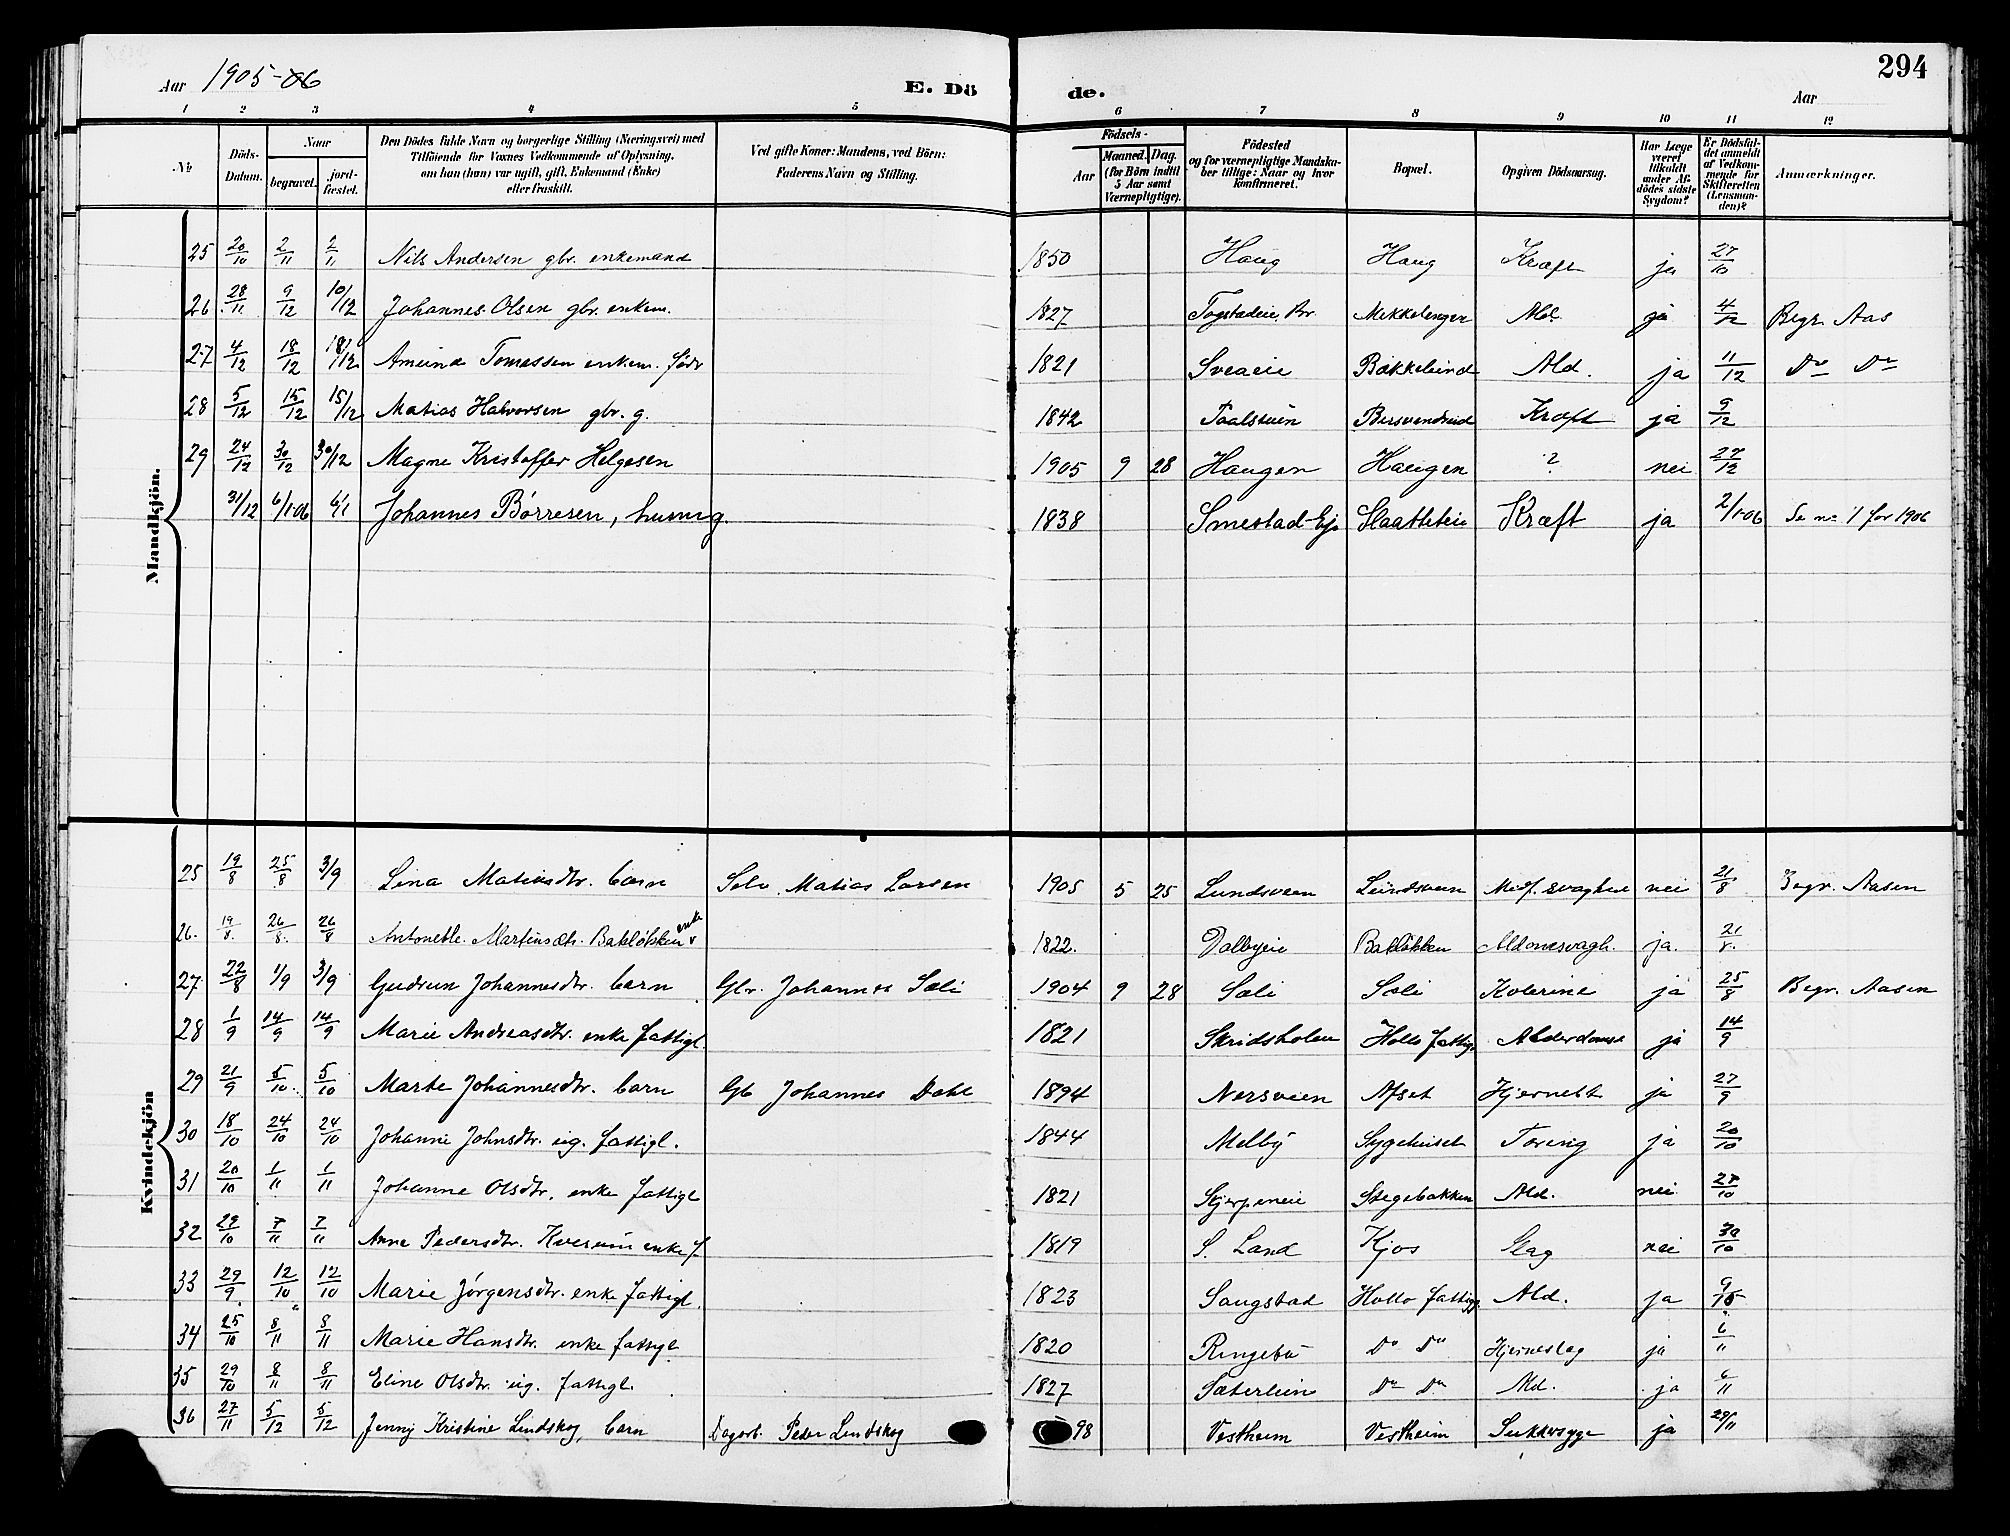 294
Aar 1905-06
E. Döde.
Aar
1 2 3 4 5 6 7 8 9 10 11 12
№
Döds-Datum.
Naar begravet. jordfæstet.
Den Dödes fulde Navn og borgerlige Stilling (Næringsvei) med Tilföiende for Voxnes Vedkommende af Oplysning, om han (hun) var ugift, gift, Enkemand (Enke) eller fraskilt.
Ved gifte Koner: Mandens, ved Börn: Faderens Navn og Stilling.
Födsels- Aar Maaned. Dag. (for Börn indtil 5 Aar samt Værnepligtige).
Födested og for værnepligtige Mandskaber tillige: Naar og hvor konfirmeret.
Bopæl.
Opgiven Dödsaarsag.
Har Læge været tilkaldt under Afdödes sidste Sygdom?
Er Dödsfaldet anmeldt af Vedkommende for Skifteretten (Lensmanden)?
Anmærkninger.
Mandkjön.
25 20/10 2/11 2/11 Nils Andersen gbr. enkemand 1850 Haug Haug Kræft ja 27/10
26 28/11 9/12 10/12 Johannes Olsen gbr. enkem. 1827 Togstadeie, Br. Mekkelenger Ald. ja 4/12 Begr. Aas
27 4/12 18/12 18/12 Amund Tomassen enkem. föder 1821 Sveaeie Bakkelund Ald. ja 11/12 Do Do
28 5/12 15/12 15/12 Matias Halvorsen gbr. g. 1842 Paalstuen Bersvendseid Kræft ja 9/12
29 24/12 30/12 30/12 Magne Kristoffer Helgesen 1905 9 28 Haugen Haugen ? nei 27/12
31/12 6/1-06 6/1 Johannes Børresen, husm g. 1838 Smestad-eje Slaatteteie Kræft ja 2/1-06 Se no 1 for 1906
Kvindekjön
25 19/8 25/8 3/9 Lina Matiasdtr. barn Selv. Matias Larsen 1905 5 25 Lundsveen Lundsveen Medf. svaghed nei 21/8 Begr. Aasen
26. 19/8. 26/8. 26/8 Antonette Martinsdtr. Bakløkken enke 1822. Dalbyeie Bakløkken Aldomsvagh. ja. 21/8.
27 22/8 1/9 3/9 Gudrun Johannesdtr. barn Gbr. Johannes Sæli 1904 9 28 Sæli Sæli Kolerine ja 25/8 Begr. Aasen
28 1/9 14/9 14/9 Marie Andreasdtr. enke fattigl. 1821 Skridsholen Hollo fattigg. Alderdomst ja 14/9
29 21/9 5/10. 5/10 Marte Johannesdtr. barn Gb Johannes Dahl 1894 Nersveen Afset Hjernebt ja 27/9
30 18/10 24/10 24/10 Johanne Johnsdtr. ug. fattigl. 1844 Melby Sygehuset Toring ja 20/10
31 20/10 1/11 1/11 Johanne Olsdtr. enke fattigl 1821 Skjerpeneie Stegebakken Ald. nei 27/10
32 29/10 7/11 7/11 Anne Pedersdtr. Kversum enke f. 1819 S. Land Kjos Slag nei 30/10
33 29/9 12/10 12/10 Marie Jørgensdtr. enke fattigl. 1823 Saugstad Hollo fattigg. Ald. ja 9/10
34 25/10 8/11 8/11 Marie Hansdtr. enke fattigl 1820 Ringebu Do Do Hjerneslag ja 6/11
35 29/10 8/11 8/11 Eline Olsdtr. ug. fattigl. 1827 Sæterlein Do Do Ald. ja 6/11
36 27/11 5/12 5/12 Jenny Kristine Lindskog, barn Dagarb. Peder Lindskog 98 Vestheim Vestheim Sukkersyge ja 29/11